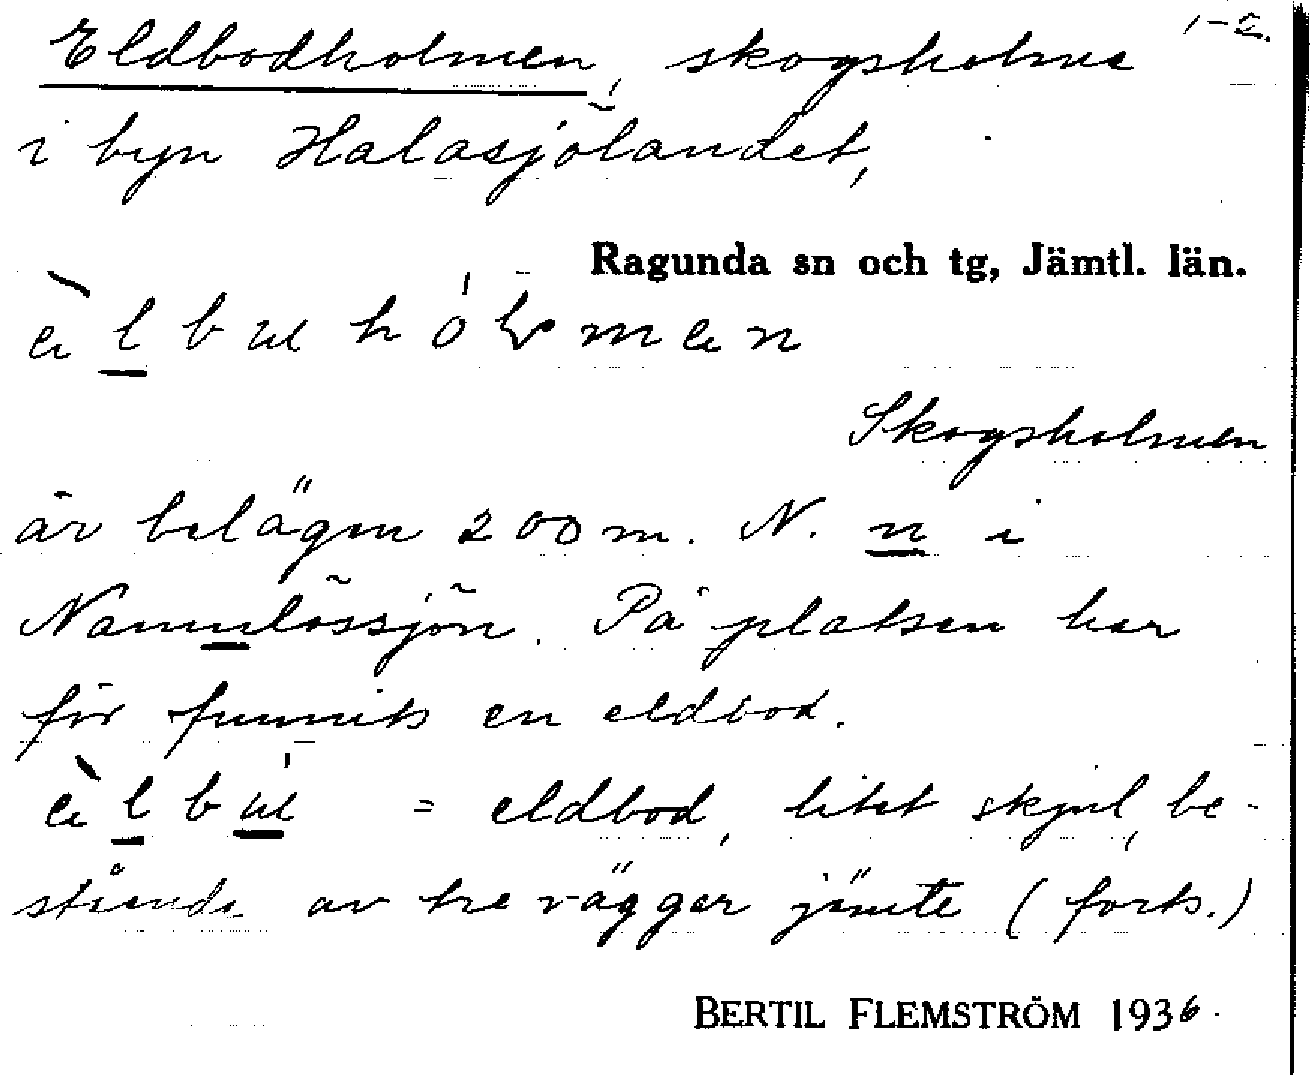 1-2.
Eldbodholmen, skogsholme
i byn Halasjölandet,
Ragunda sn och tg, Jämtl. län.
Skogsholmen
är belägen 200 m. N. n i
Namnlössjön. På platsen har
för funnits en eldbod.
= eldbod, litet skjul, be-
stående av tre väggar jämte (forts.)
BERTIL FLEMSTRÖM 1936.